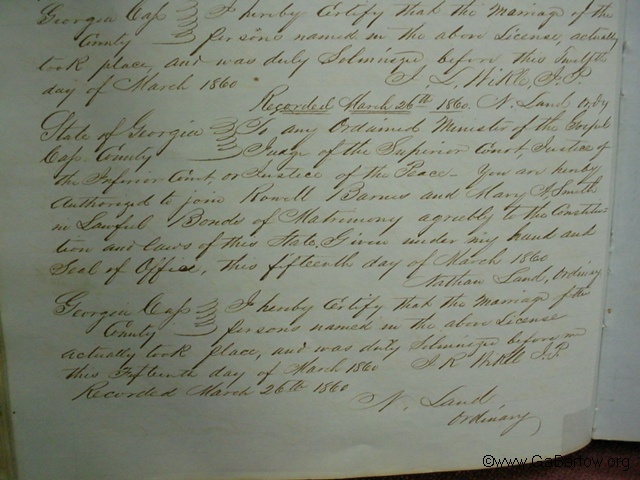 Georgia Cass I hereby Certify that the Marriage of the
County persons named in the above License, actually
took place, and was duly Solemnized before this Twelfth
day of March 1860 J. L. Wikle, J.P.
Recorded March 26th 1860. N. Land Ordy
State of Georgia To any Ordained Minister of the Gospel
Cass County Judge of the Superior Court, Justice of
the Inferior Court, or Justice of the Peace – You are hereby
Authorized to join Rowell Barnes and Mary Smith
in Lawful Bonds of Matrimony agreebly to the Constitu-
tion and Laws of this State, Given under my hand and
Seal of Office, this fifteenth day of March 1860
Nathan Land, Ordinary
Georgia Cass I hereby Certify that the Marriage of the
County persons named in the above License
actually took place, and was duly Solemnized before me
this Fifteenth day of March 1860 Wikle J.P.
Recorded March 26th 1860
N. Land
Ordinary
©www.GaBartow.org